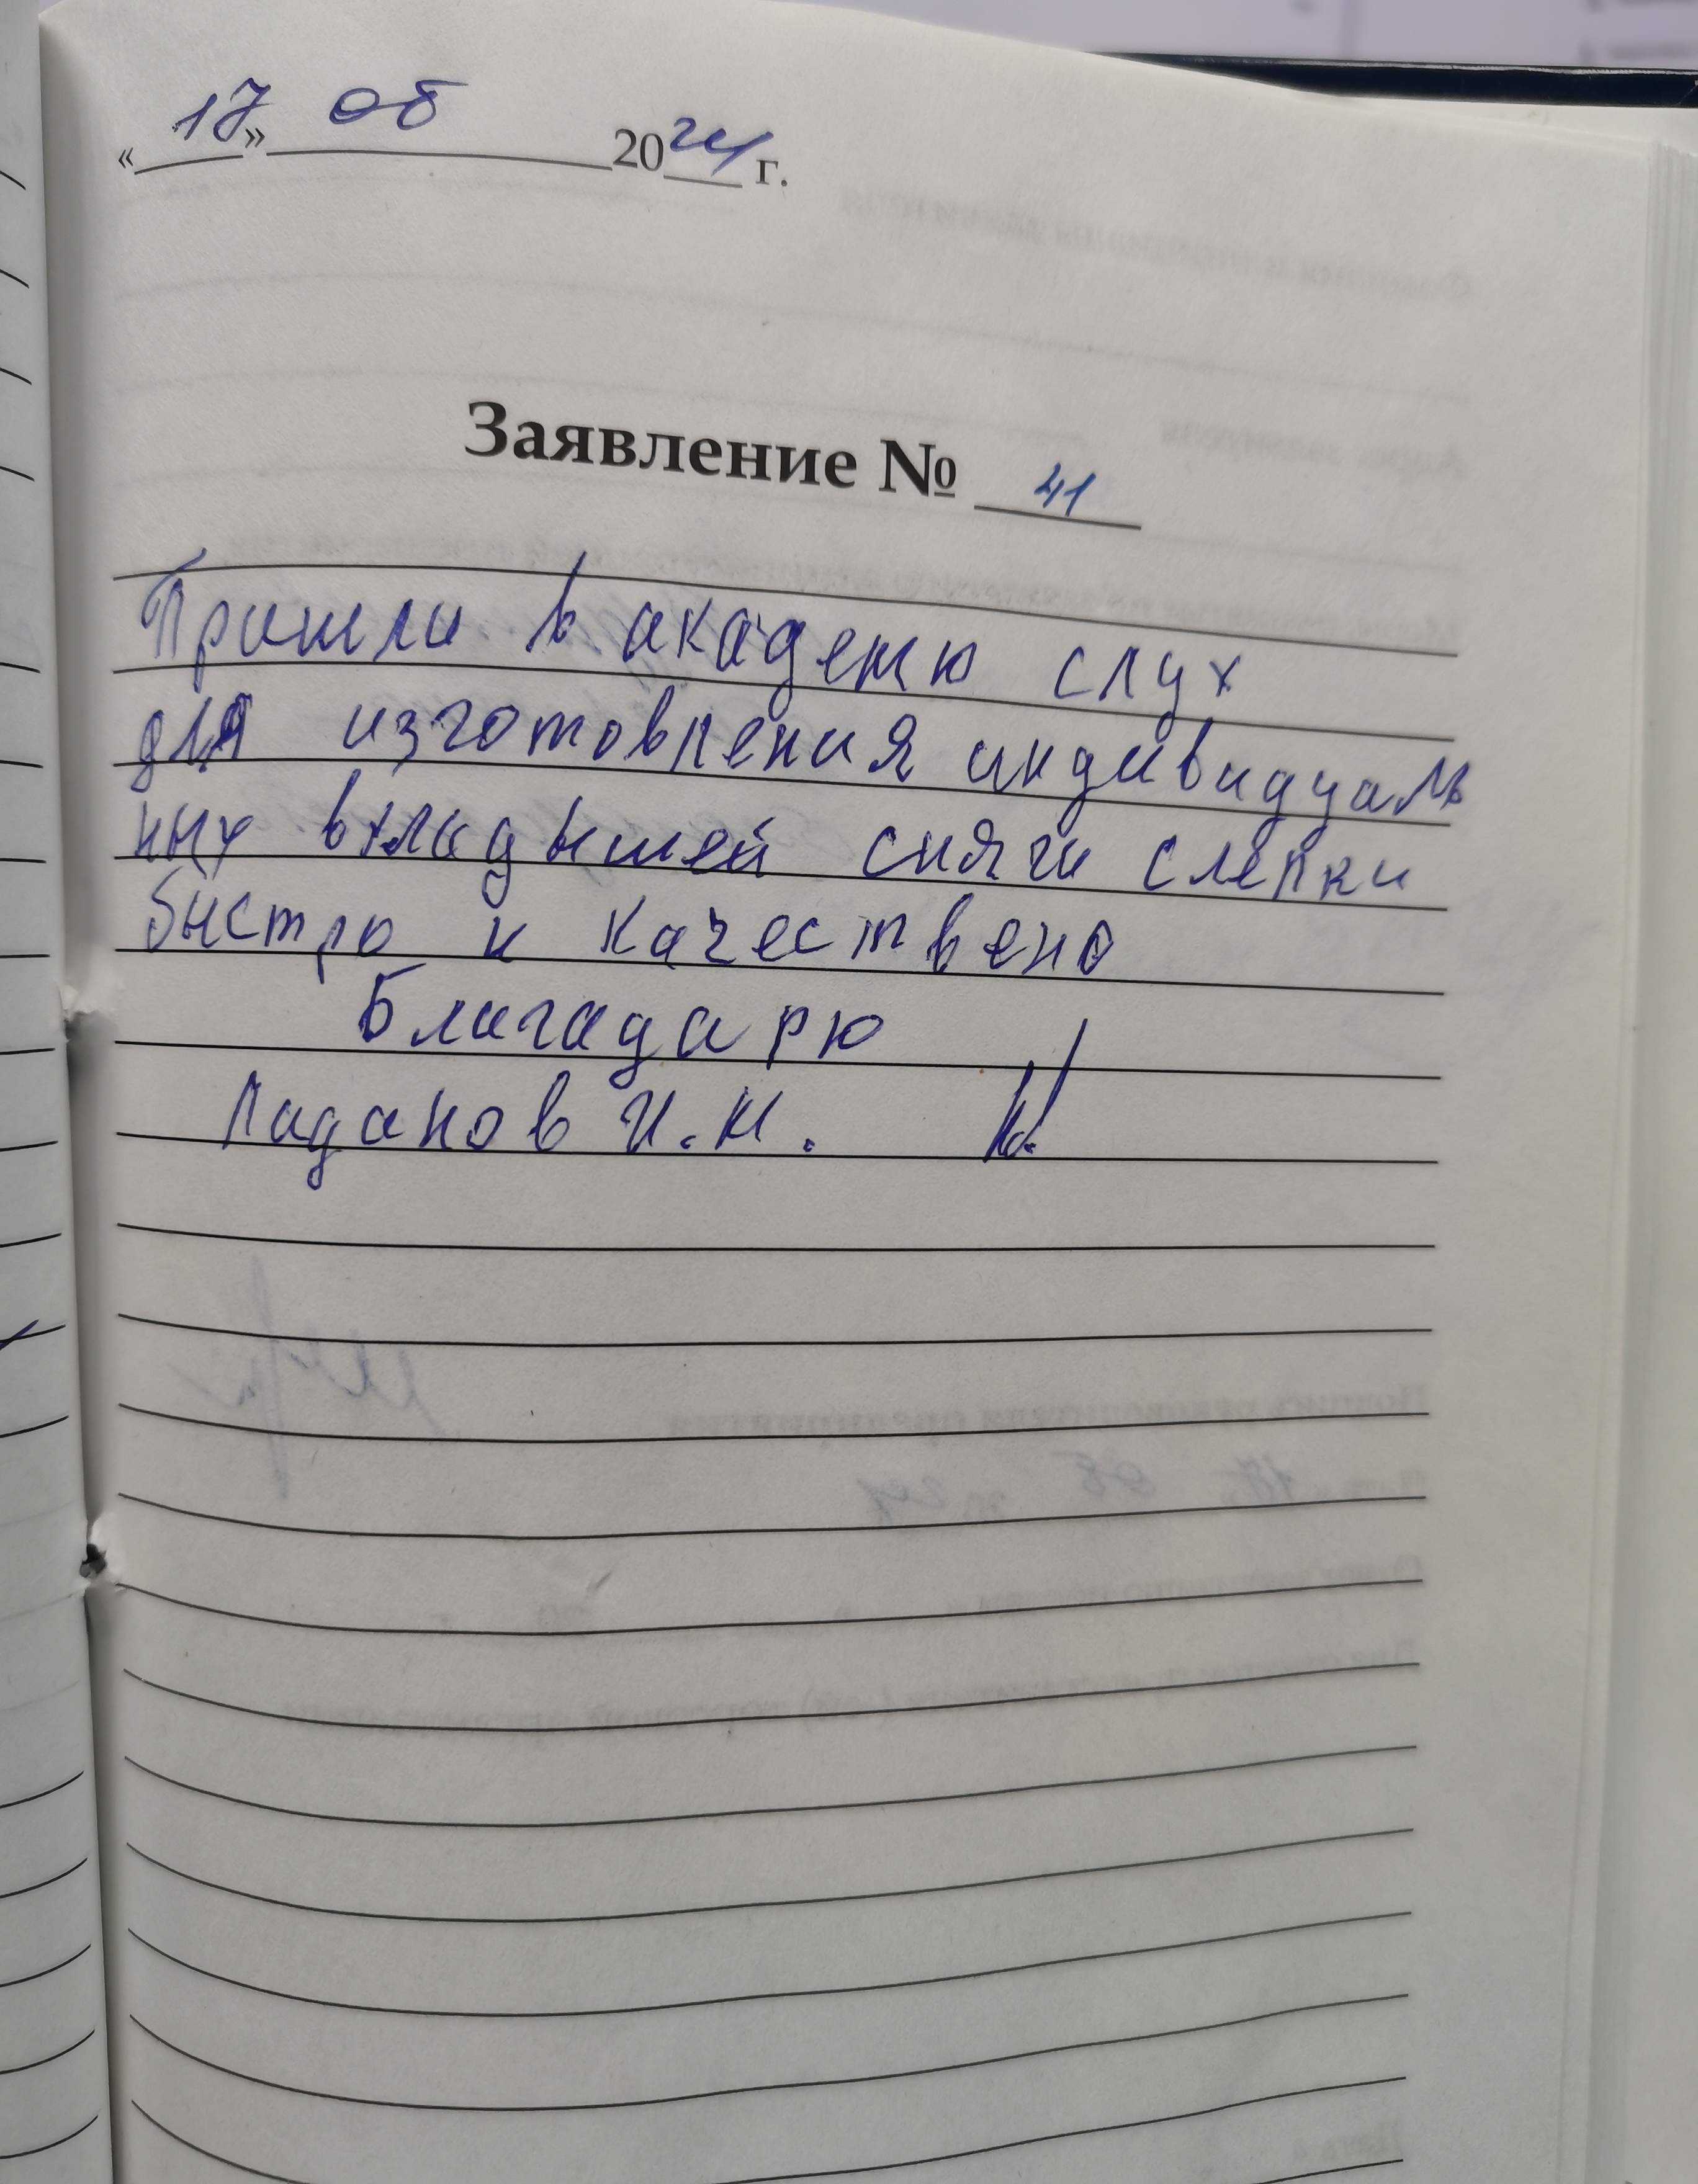 «17» 06 2024 г.
Заявление № 41
Пришли в академю слух
для изготовления индивидуаль
ных вкладышей сняли слепки
быстро и качествено
Благадарю
Ладанов И.Н.